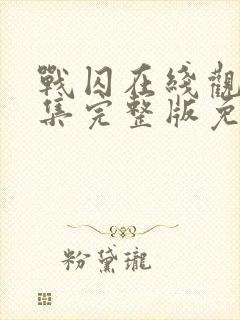 戰囚在綫觀
集完整版免
粉黛瓏